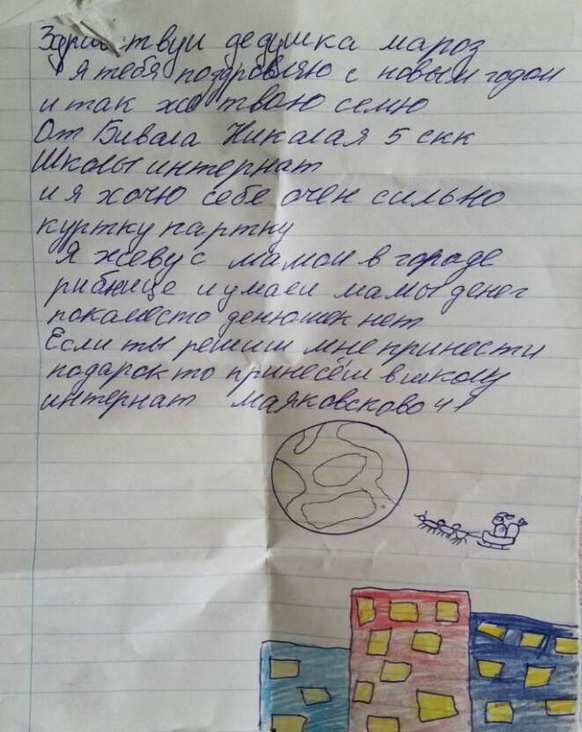 Здравствуи дедушка мароз
Я тебя поздровляю с новым годом
и так жа тваю семю
От Бивала Николая 5 скк
Школы интернат
и я хочу себе очен сильно
куртку партку
Я живу с мамои в городе
рибнице и умаеи мамы денег
покаместо денюшек нет
Если ты решиш мне принести
подарок то принесёш в школу
интернат маяковсково 41